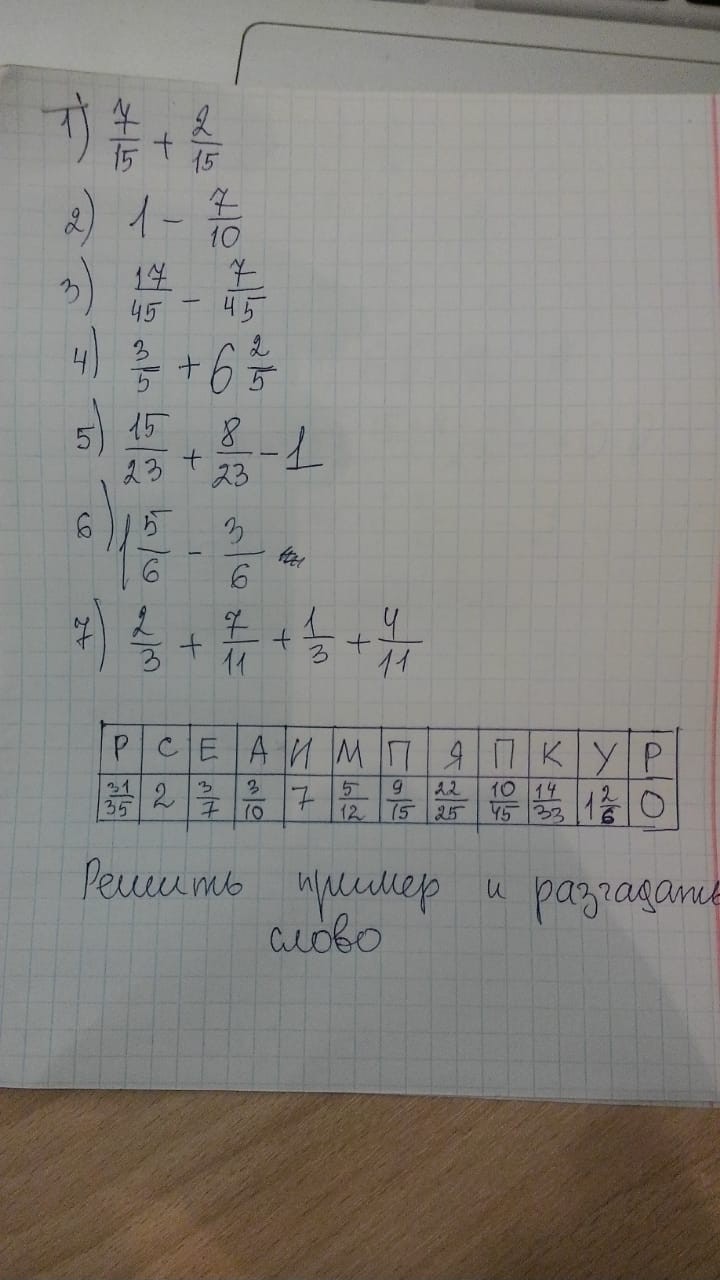 1) 7/15 + 2/15
2) 1 - 7/10
3) 17/45 - 7/45
4) 3/5 + 6 2/5
5) 15/23 + 8/23 - 1
6) 1 5/6 - 3/6
7) 2/3 + 7/11 + 1/3 + 4/11
Р С Е А И М П Я П К У Р
31/35 2 3/7 3/10 7 5/12 9/15 22/25 10/45 14/33 1 2/6 0
Решить пример и разгадать
слово